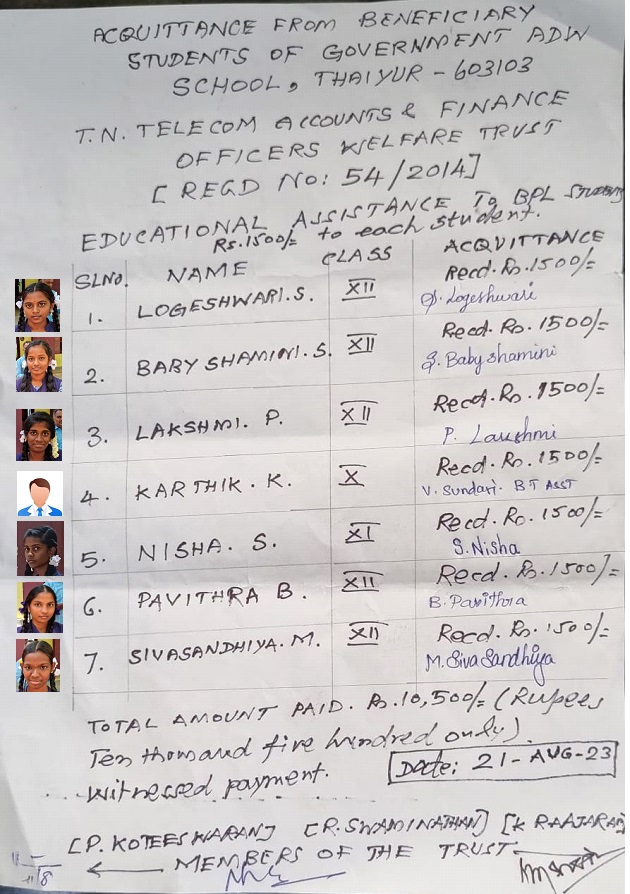 ACQUITTANCE FROM BENEFICIARY
STUDENTS OF GOVERNMENT ADW
SCHOOL, THAIYUR - 603103
T.N. TELECOM ACCOUNTS & FINANCE
OFFICERS WELFARE TRUST
[REGD NO: 54/2014]
EDUCATIONAL ASSISTANCE TO BPL STUDENTS
Rs.1500/= to each student.
SLNo. NAME CLASS ACQUITTANCE
Recd. Rs. 1500/=
1. LOGESHWARI. S. XII S. Logeshwari
Recd. Rs. 1500/=
2. BABY SHAMINI. S. XII S. Baby shamini
Recd. Rs. 1500/=
3. LAKSHMI. P. XII P. Lakshmi
Recd. Rs. 1500/=
4. KARTHIK. K. X V. Sundari. BT ASST
Recd. Rs. 1500/=
5. NISHA. S. XI S. Nisha
Recd. Rs. 1500/=
6. PAVITHRA B. XII B. Pavithra
Recd. Rs. 1500/=
7. SIVASANDHIYA. M. XII M. Siva Sandhiya
TOTAL AMOUNT PAID. Rs. 10,500/= (Rupees
Ten thousand five hundred only).
Witnessed payment. Date: 21-AUG-23
[P. KOTEESWARAN] [R. SWAMINATHAN] [K RAAJARAM]
MEMBERS OF THE TRUST